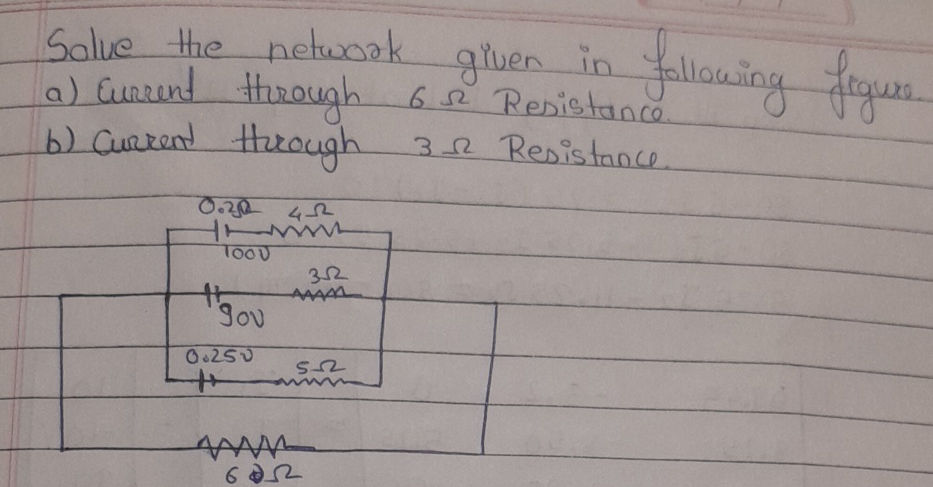 Solve the network given in following figure.
a) Current through 6 Ω Resistance.
b) Current through 3 Ω Resistance.
0.2Ω 4Ω
100V
3Ω
90V
0.25V 5Ω
6 Ω